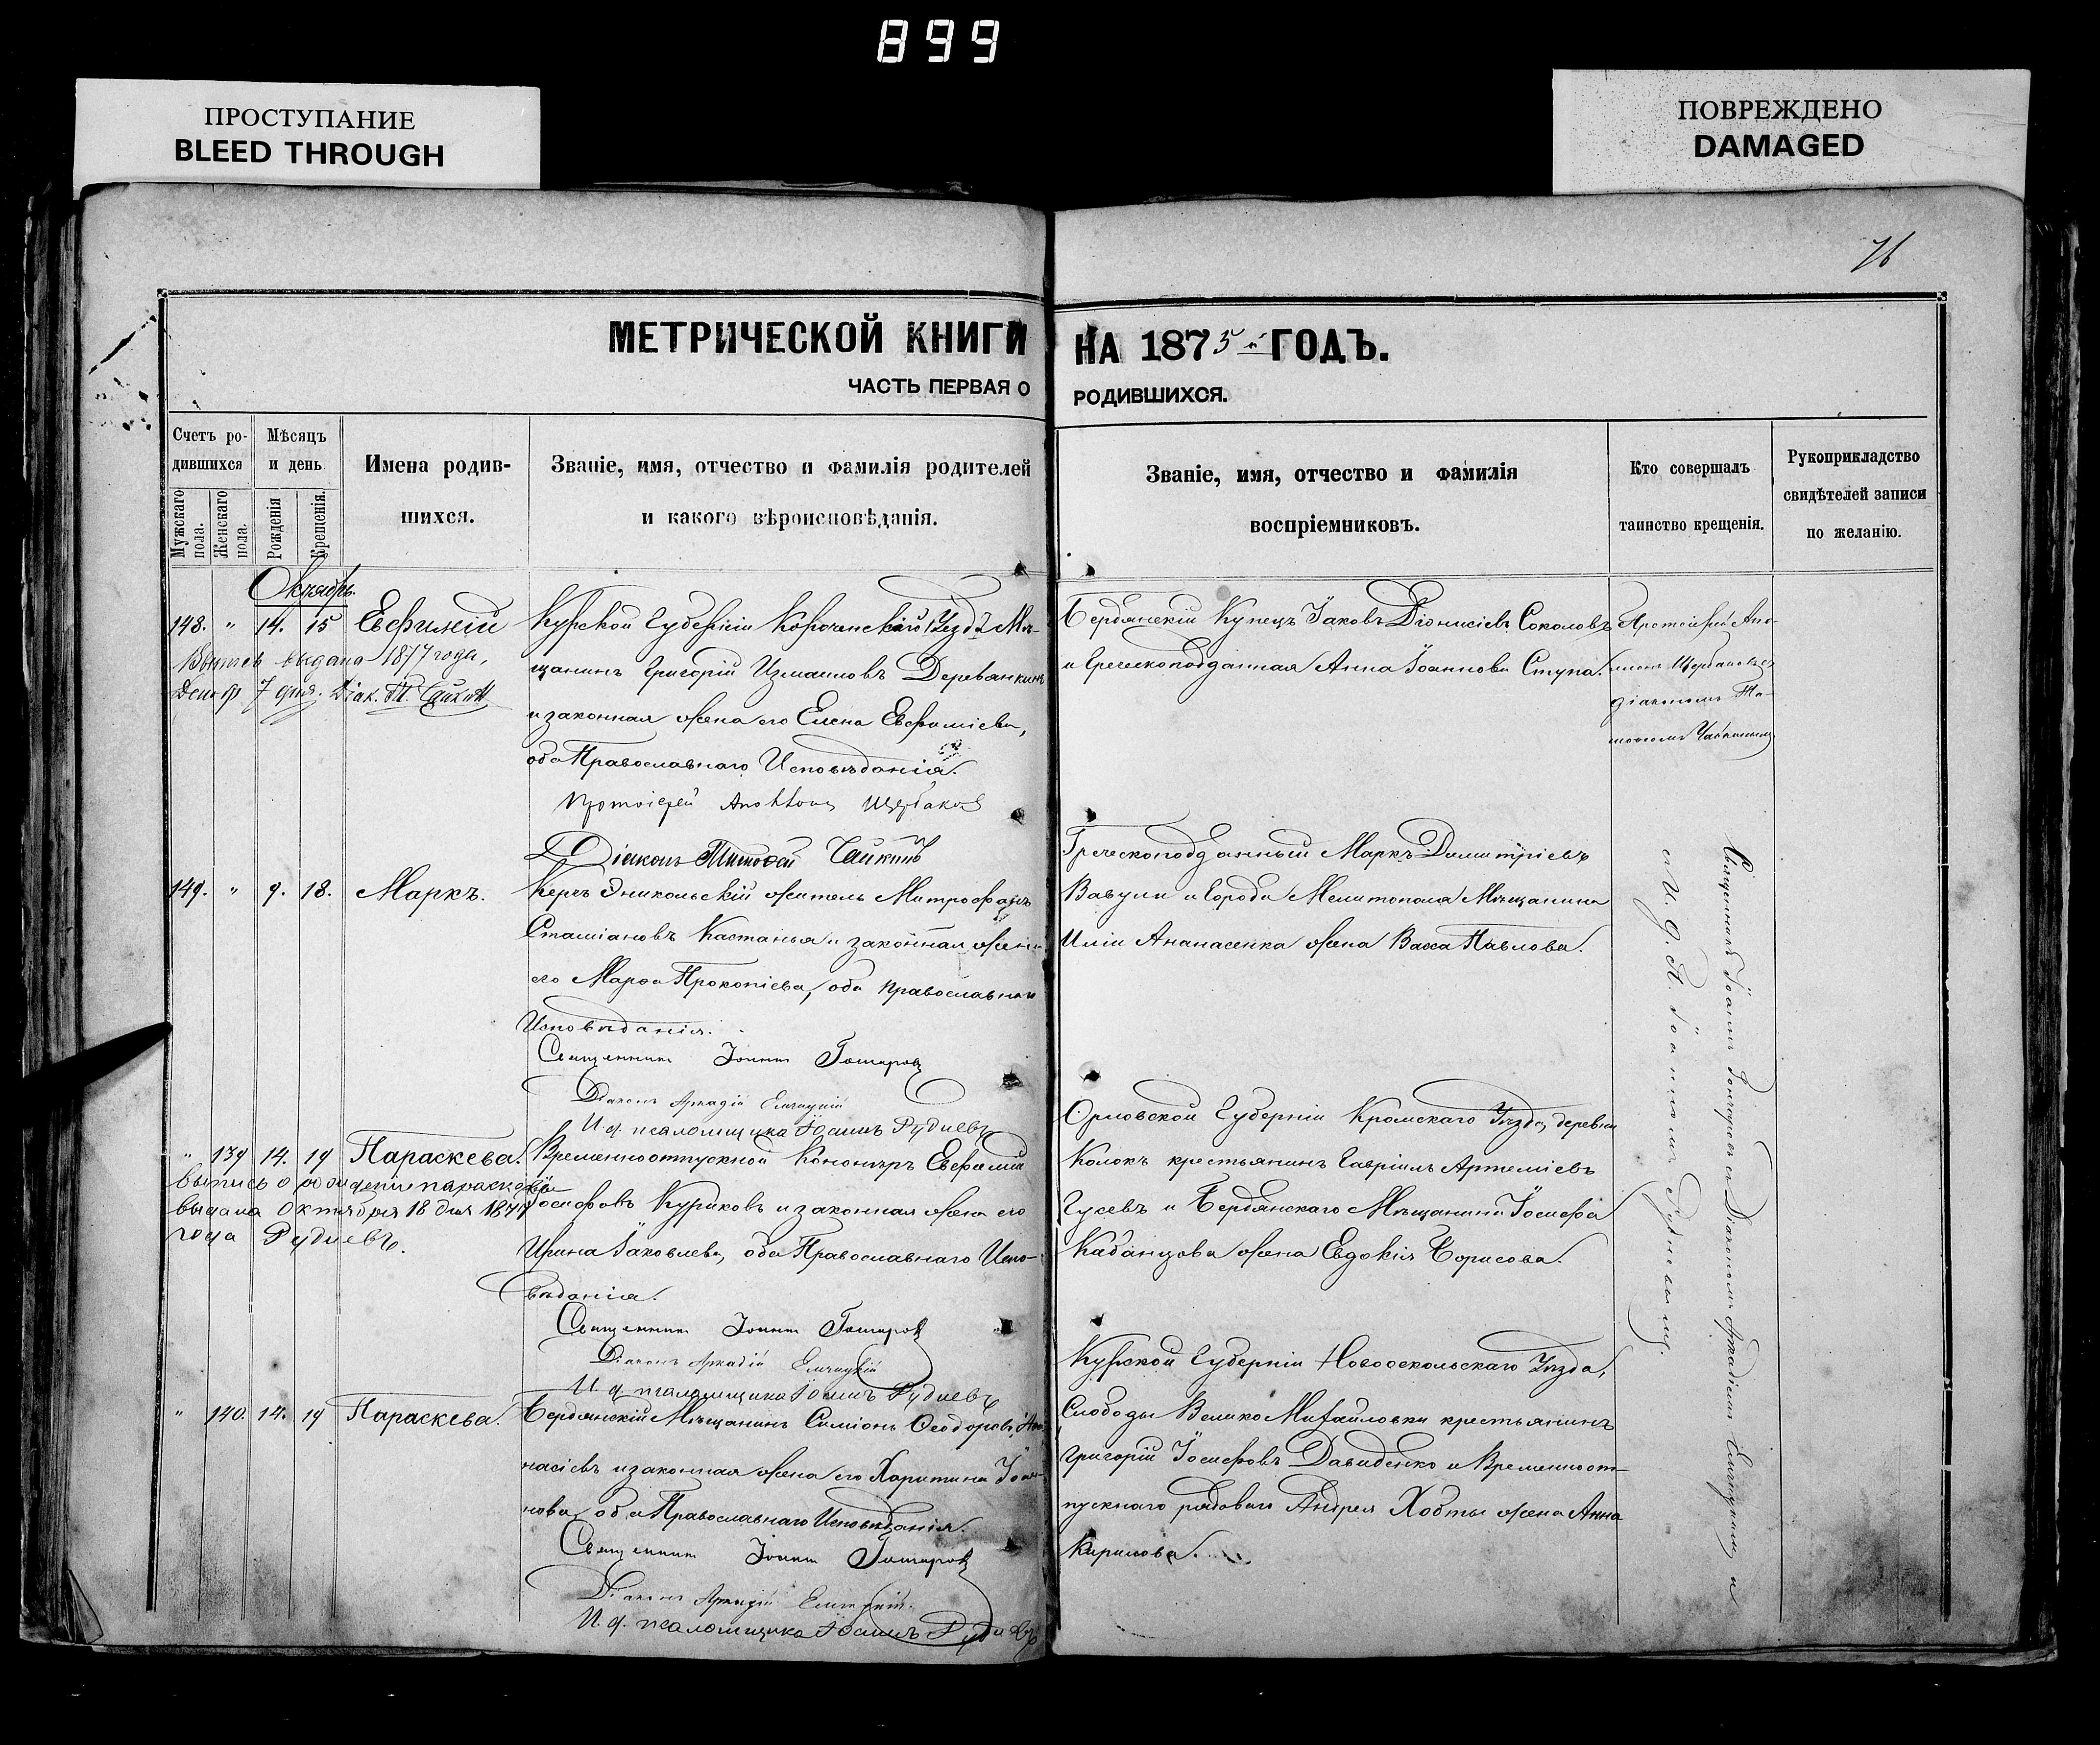 899
ПРОСТУПАНИЕ
BLEED THROUGH
ПОВРЕЖДЕНО
DAMAGED
76
МЕТРИЧЕСКОЙ КНИГИ НА 1875 й ГОДЪ.
ЧАСТЬ ПЕРВАЯ О РОДИВШИХСЯ.
Счетъ ро-
дившихся
Мужскаго пола.
Женскаго пола.
Мѣсяцъ
и день
Рожденія
Крещенія.
Имена родив-
шихся.
Званіе, имя, отчество и фамилія родителей
и какого вѣроисповѣданія.
Званіе, имя, отчество и фамилія
воспріемниковъ.
Кто совершалъ
таинство крещенія.
Рукоприкладство
свидѣтелей записи
по желанію.
Октябрь.
148. " 14. 15 Евфимій
Выпись выдана 1877 года,
7 дня. Діак. Т. Чайкинъ
Курской Губерніи Мѣ-
щанинъ Григорій Измаиловъ Деревянкинъ
и законная жена его Елена Евфиміева,
оба Православнаго Исповѣданія.
Протоіерей Щербаковъ
Діаконъ Тимофей Чайкинъ
Бердянскій Купецъ Іаковъ Діонисіевъ Соколовъ
и Греческоподданная Анна Іоаннова Ступа.
Протоіерей
Щербаковъ съ
діакономъ Ти-
мофеемъ Чайкинымъ
149. " 9. 18. Маркъ.
Керчь Эникольскій житель Митрофанъ
Стаміановъ Кастанья и законная жена
его Марфа Прокопіева, оба православнаго
Исповѣданія.
Священникъ Іоаннъ Гончаровъ
Діаконъ Аркадій
И. д. псаломщика Іоаннъ Рудневъ
Греческоподданный Маркъ Димитріевъ
Вавули и Города Мелитополя Мѣщанина
Иліи Ананасенка жена Васса Павлова.
Священникъ Іоаннъ Гончаровъ съ Діакономъ Аркадіемъ и
и И. д. П. Іоанномъ Рудневымъ.
" 139 14. 19 Параскева.
Выпись о рожденіи параскевы
выдана октября 18 дня
года Рудневъ.
Временноотпускной Канониръ Евфимій
Іосифовъ Куриковъ и законная жена его
Ирина Іаковлева, оба Православнаго Испо-
вѣданія.
Священникъ Іоаннъ Гончаровъ
Діаконъ Аркадій
И. д. псаломщика Іоаннъ Рудневъ
Орловской Губерніи Кромскаго Уѣзда, деревни
Колокъ крестьянинъ Гавріилъ Артеміевъ
Гусевъ и Бердянскаго Мѣщанина Іосифа
Кабанцова жена Евдокія Борисова.
" 140. 14. 19 Параскева.
Бердянскій Мѣщанинъ Симіонъ Ѳеодоровъ
насіевъ и законная жена его Харитина Іоан-
нова, оба Православнаго Исповѣданія.
Священникъ Іоаннъ Гончаровъ
Діаконъ Аркадій
И. д. псаломщика Іоаннъ Рудневъ
Курской Губерніи Новооскольскаго Уѣзда,
Слободы Велико Михайловки крестьянинъ
Григорій Іосифовъ Давиденко и Временноот-
пускнаго рядоваго Андрея Хобты жена Анна
Кирилова.